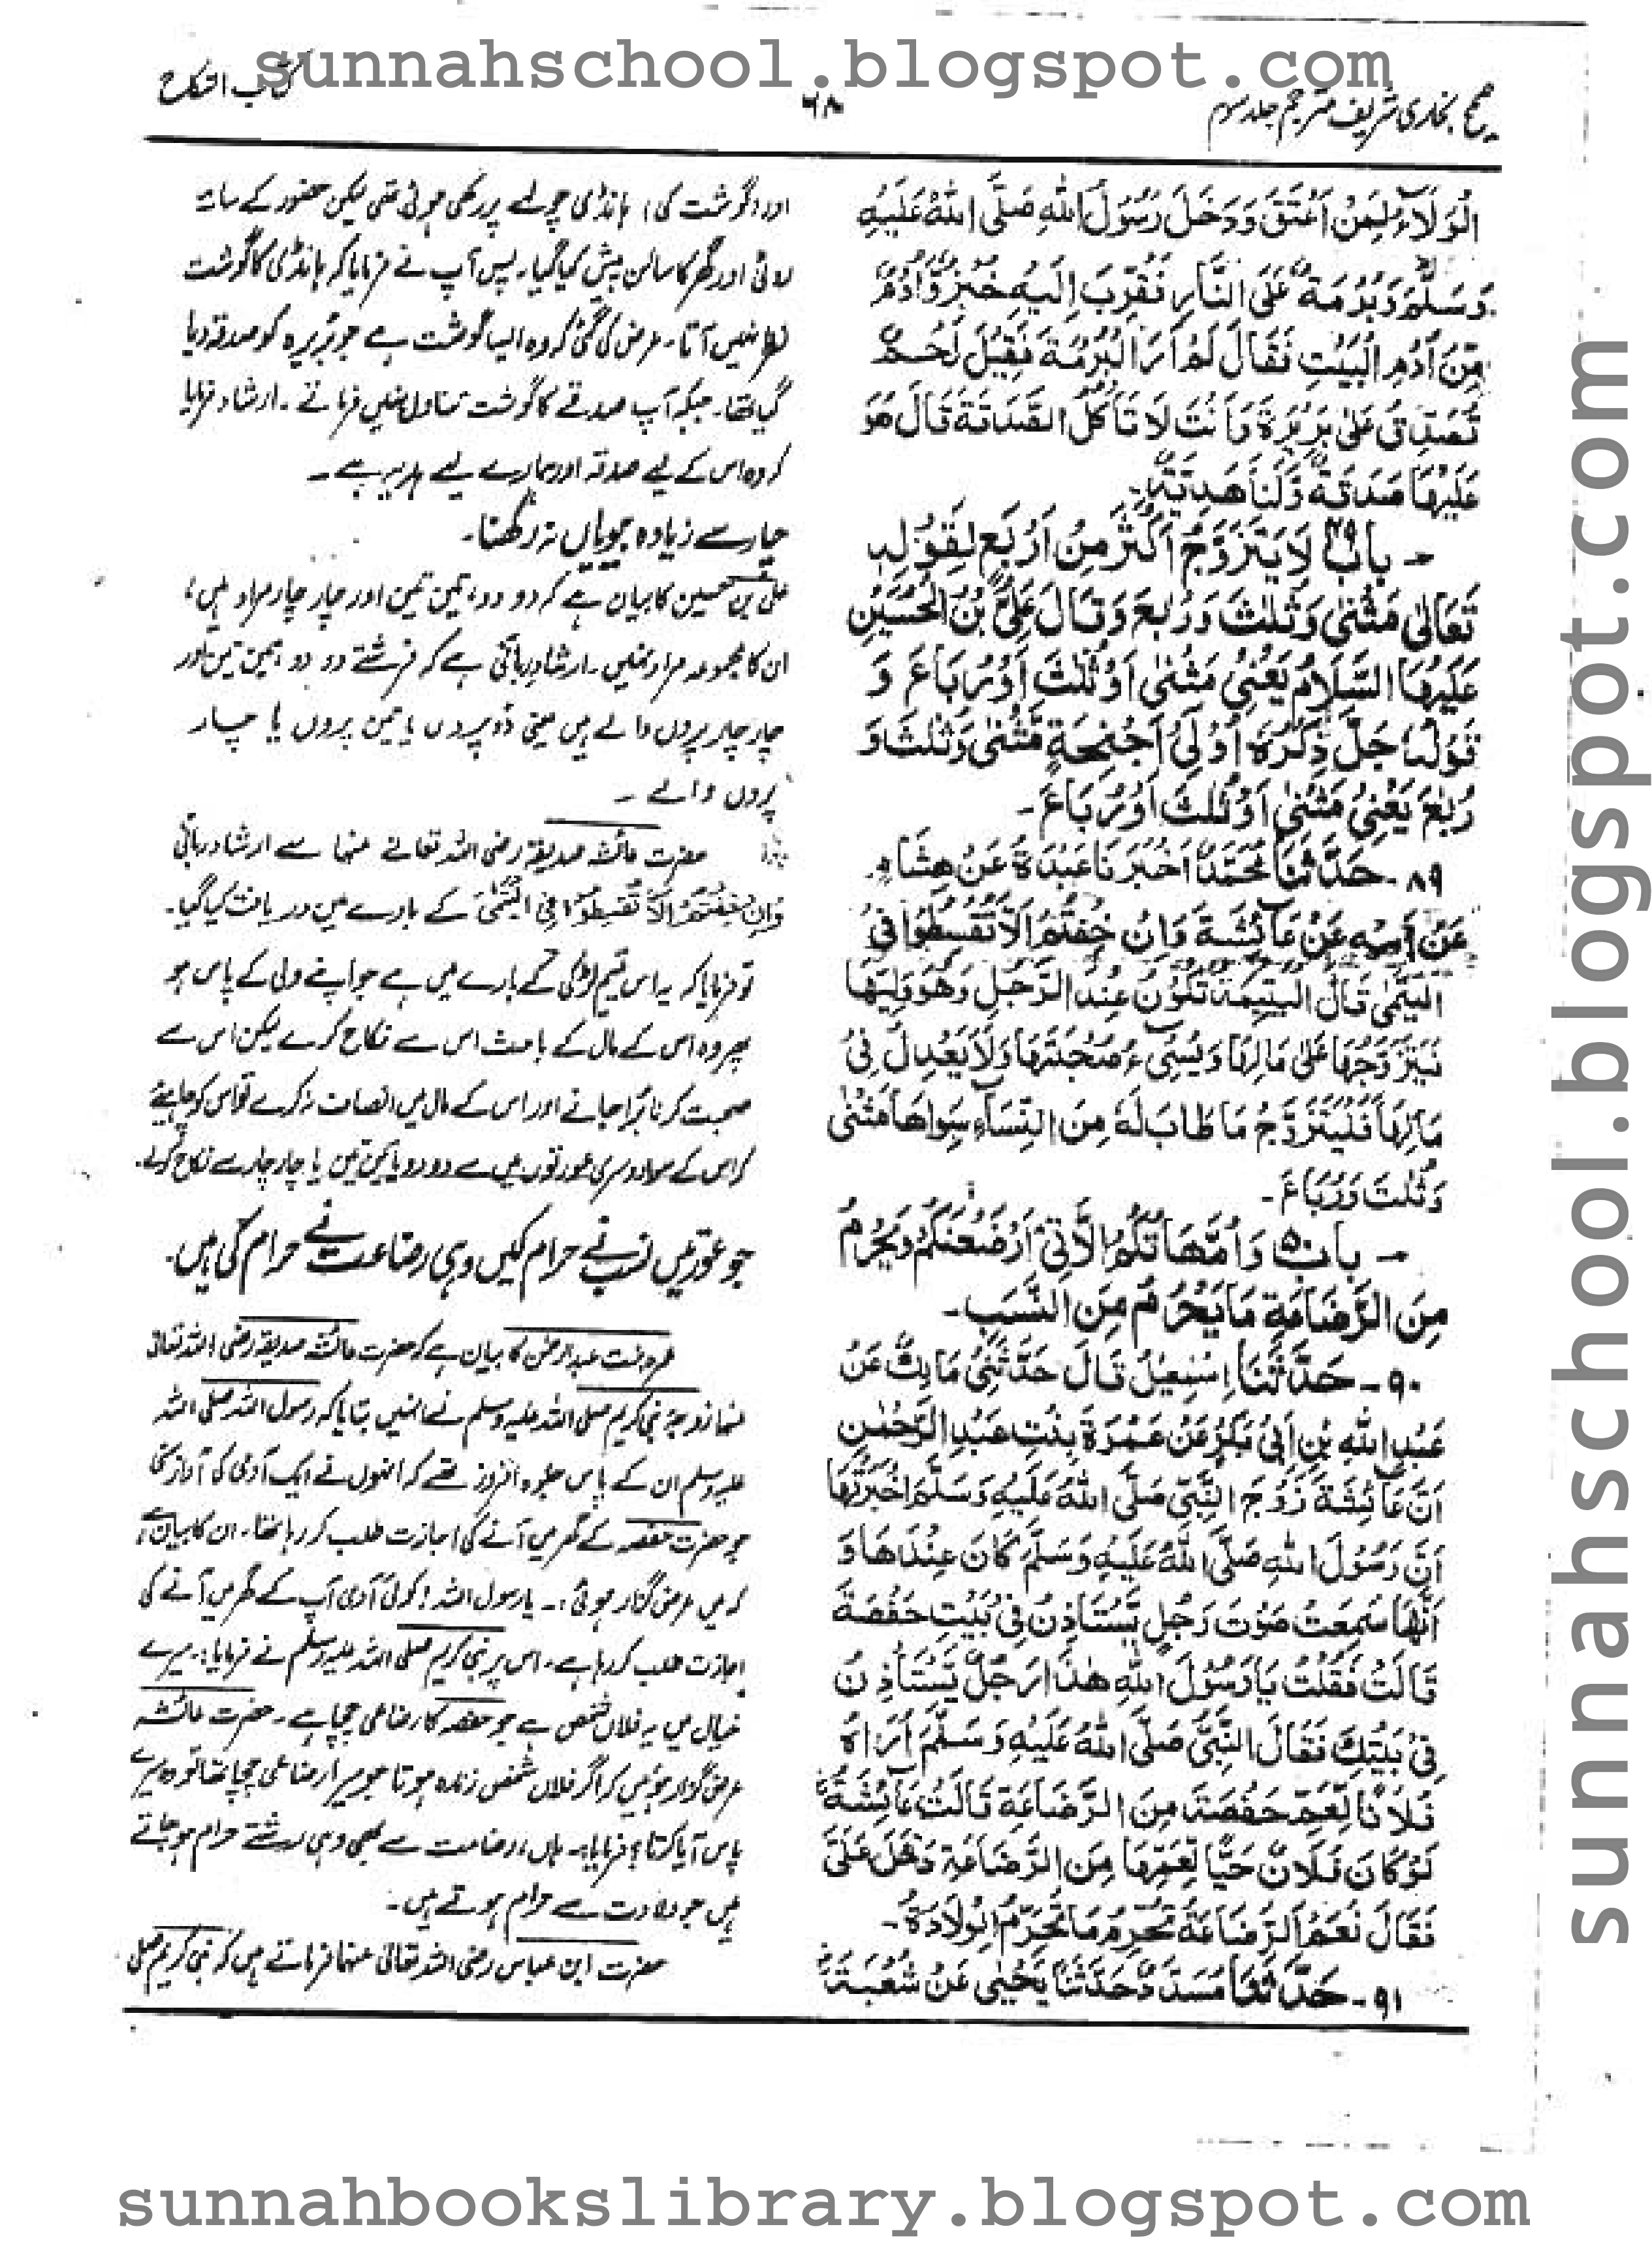 sunnahschool.blogspot.com
صحیح بخاری شریف مترجم جلد سوم
۶۸
کتاب النکاح
الْوَلَاءُ لِمَنْ اَعْتَقَ وَدَخَلَ رَسُوْلُ اللهِ صَلَّى اللهُ عَلَيْهِ
وَسَلَّمَ وَبُرْمَةٌ عَلَى النَّارِ فَقُرِّبَ اِلَيْهِ خُبْزٌ وَّاُدُمٌ
مِّنْ اُدُمِ الْبَيْتِ فَقَالَ لَمْ اَرَ الْبُرْمَةَ فَقِيْلَ لَحْمٌ
تُصَدِّقَ عَلٰى بَرِيْرَةَ وَاَنْتَ لَا تَاْكُلُ الصَّدَقَةَ قَالَ هُوَ
عَلَيْهَا صَدَقَةٌ وَّلَنَا هَدِيَّةٌ۔
- باب ۴۹ لَا يَتَزَوَّجُ اَكْثَرَ مِنْ اَرْبَعٍ لِقَوْلِهٖ
تَعَالٰى مَثْنٰى وَثُلٰثَ وَرُبٰعَ وَقَالَ عَلِيُّ بْنُ الْحُسَيْنِ
عَلَيْهِمَا السَّلَامُ يَعْنِيْ مَثْنٰى اَوْ ثُلٰثَ اَوْ رُبَاعَ وَ
قَوْلُهٗ جَلَّ ذِكْرُهٗ اُوْلِيْ اَجْنِحَةٍ مَّثْنٰى وَثُلٰثَ وَ
رُبٰعَ يَعْنِيْ مَثْنٰى اَوْ ثُلٰثَ اَوْ رُبَاعَ۔
۸۹۔ حَدَّثَنَا مُحَمَّدٌ اَخْبَرَنَا عَبْدَةُ عَنْ هِشَامٍ
عَنْ اَبِيْهِ عَنْ عَآئِشَةَ وَاِنْ خِفْتُمْ اَلَّا تُقْسِطُوْا فِي
الْيَتٰمٰى قَالَ الْيَتِيْمَةُ تَكُوْنُ عِنْدَ الرَّجُلِ وَهُوَ وَلِيُّهَا
فَيَتَزَوَّجُهَا عَلٰى مَالِهَا وَيُسِيْٓءُ صُحْبَتَهَا وَلَا يَعْدِلُ فِيْ
مَالِهَا فَلْيَتَزَوَّجْ مَا طَابَ لَهٗ مِنَ النِّسَآءِ سِوَاهَا مَثْنٰى
وَثُلٰثَ وَرُبَاعَ۔
- باب ۵۰ وَاُمَّهَاتُكُمُ الّٰتِيْ اَرْضَعْنَكُمْ وَيَحْرُمُ
مِنَ الرَّضَاعَةِ مَا يَحْرُمُ مِنَ النَّسَبِ۔
۹۰۔ حَدَّثَنَا اِسْمٰعِيْلُ قَالَ حَدَّثَنِيْ مَالِكٌ عَنْ
عَبْدِ اللهِ بْنِ اَبِيْ بَكْرٍ عَنْ عَمْرَةَ بِنْتِ عَبْدِ الرَّحْمٰنِ
اَنَّ عَائِشَةَ زَوْجَ النَّبِيِّ صَلَّى اللهُ عَلَيْهِ وَسَلَّمَ اَخْبَرَتْهَا
اَنَّ رَسُوْلَ اللهِ صَلَّى اللهُ عَلَيْهِ وَسَلَّمَ كَانَ عِنْدَهَا وَ
اَنَّهَا سَمِعَتْ صَوْتَ رَجُلٍ يَّسْتَاْذِنُ فِيْ بَيْتِ حَفْصَةَ
قَالَتْ فَقُلْتُ يَا رَسُوْلَ اللهِ هٰذَا رَجُلٌ يَّسْتَاْذِنُ
فِيْ بَيْتِكَ فَقَالَ النَّبِيُّ صَلَّى اللهُ عَلَيْهِ وَسَلَّمَ اُرَاهُ
فُلَانًا لِّعَمِّ حَفْصَةَ مِنَ الرَّضَاعَةِ قَالَتْ عَآئِشَةُ
لَوْ كَانَ فُلَانٌ حَيًّا لِعَمِّهَا مِنَ الرَّضَاعَةِ دَخَلَ عَلَيَّ
فَقَالَ نَعَمْ الرَّضَاعَةُ تُحَرِّمُ مَا تُحَرِّمُ الْوِلَادَةُ۔
۹۱۔ حَدَّثَنَا مُسَدَّدٌ حَدَّثَنَا يَحْيٰى عَنْ شُعْبَةَ
اور (گوشت کی) ہانڈی چولہے پر رکھی ہوئی تھی لیکن حضور کے سامنے
روٹی اور گھر کا سالن پیش کیا گیا۔ پس آپ نے فرمایا کہ ہانڈی کا گوشت
نظر نہیں آتا۔ عرض کی گئی کہ وہ ایسا گوشت ہے جو بریرہ کو صدقہ دیا
گیا تھا۔ جبکہ آپ صدقے کا گوشت تناول نہیں فرماتے۔ ارشاد فرمایا
کہ وہ اس کے لیے صدقہ اور ہمارے لیے ہدیہ ہے۔
چار سے زیادہ بیویاں نہ رکھنا۔
علی بن حسین کا بیان ہے کہ دو دو، تین تین اور چار چار مراد ہیں،
ان کا مجموعہ مراد نہیں۔ ارشاد ربانی ہے کہ فرشتے دو دو، تین تین اور
چار چار پروں والے ہیں یعنی دو پروں یا تین پروں یا چار
پروں والے۔
حضرت عائشہ صدیقہ رضی اللہ تعالےٰ عنہا سے ارشاد ربانی
وَاِنْ خِفْتُمْ اَلَّا تُقْسِطُوْا فِي الْيَتٰمٰى کے بارے میں دریافت کیا گیا۔
تو فرمایا کہ یہ اس یتیم لڑکی کے بارے میں ہے جو اپنے ولی کے پاس ہو
پھر وہ اس کے مال کے باعث اس سے نکاح کرے لیکن اس سے
صحبت کرنا برا جانے اور اس کے مال میں انصاف نہ کرے تو اس کو چاہیئے
کہ اس کے سوا دوسری عورتوں میں سے دو دو یا تین تین یا چار چار سے نکاح کرلے۔
جو عورتیں نسب نے حرام کیں وہی رضاعت نے حرام کی ہیں۔
عمرہ بنت عبدالرحمٰن کا بیان ہے کہ حضرت عائشہ صدیقہ رضی اللہ تعالیٰ
عنہا زوجۂ نبی کریم صلی اللہ علیہ وسلم نے انہیں بتایا کہ رسول اللہ صلی اللہ
علیہ وسلم ان کے پاس جلوہ افروز تھے کہ انہوں نے ایک آدمی کی آواز سنی
جو حضرت حفصہ کے گھر میں آنے کی اجازت طلب کر رہا تھا۔ ان کا بیان ہے
کہ میں عرض گزار ہوئی:۔ یا رسول اللہ! کوئی آدمی آپ کے گھر میں آنے کی
اجازت طلب کر رہا ہے۔ اس پر نبی کریم صلی اللہ علیہ وسلم نے فرمایا:۔ میرے
خیال میں یہ فلاں شخص ہے جو حفصہ کا رضاعی چچا ہے۔ حضرت عائشہ
عرض گزار ہوئیں کہ اگر فلاں شخص زندہ ہوتا جو میرا رضاعی چچا تھا تو وہ میرے
پاس آیا کرتا؟ فرمایا:۔ ہاں، رضاعت سے بھی وہی رشتے حرام ہو جاتے
ہیں جو ولادت سے حرام ہوتے ہیں۔
حضرت ابن عباس رضی اللہ تعالیٰ عنہما فرماتے ہیں کہ نبی کریم صلی
sunnahschool.blogspot.com
sunnahbookslibrary.blogspot.com